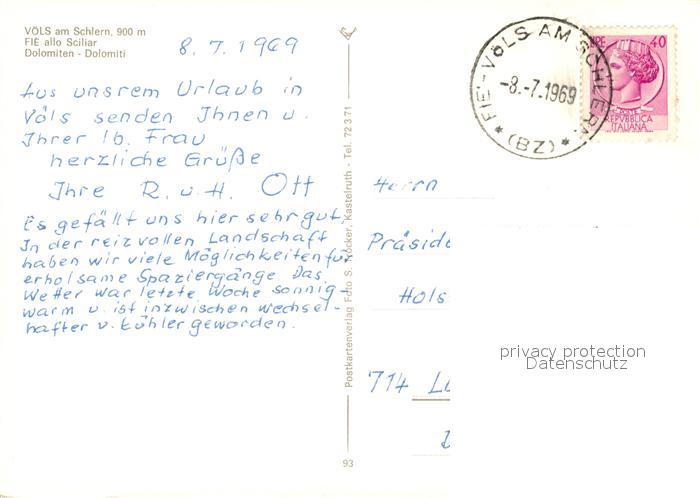 VÖLS am Schlern, 900 m
FIÈ allo Sciliar
Dolomiten - Dolomiti
8.7.1969
Aus unsrem Urlaub in
Völs senden Ihnen u.
Ihrer lb. Frau
herzliche Grüße
Ihre R. u. H. Ott
Es gefällt uns hier sehr gut.
In der reizvollen Landschaft
haben wir viele Möglichkeiten für
erholsame Spaziergänge. Das
Wetter war letzte Woche sonnig
warm u. ist inzwischen wechsel-
hafter u. kühler geworden.
Postkartenverlag Foto S. Kocker, Kastelruth - Tel. 72371
93
FIE - VÖLS AM SCHLERN
-8.-7.1969
* (BZ) *
LIRE 40
POSTE
REPVBBLICA
ITALIANA
Herrn
Präside
Hols
714 Lu
privacy protection
Datenschutz